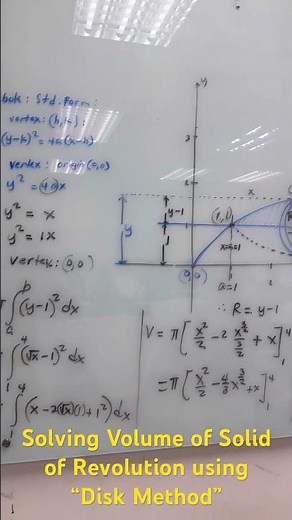 bola: Std. Form:
vertex: (h,k):
(y-k)² = 4a(x-h)
vertex: origin (0,0)
y² = 4ax
y² = x
y² = 1x
vertex: (0,0)
∫ (y-1)² dx
∫₁⁴ (√x-1)² dx
∫₁⁴ (x-2(√x)(1)+1²) dx
y
3
2
x
y-1
y
1
(1,1)
x=a=1
(0,0)
a=1
∴ R = y-1
V = π[x²/2 - 2 x^(3/2)/(3/2) + x]₁⁴
= π[x²/2 - 4/3 x^(3/2) + x]₁⁴
Solving Volume of Solid
of Revolution using
“Disk Method”